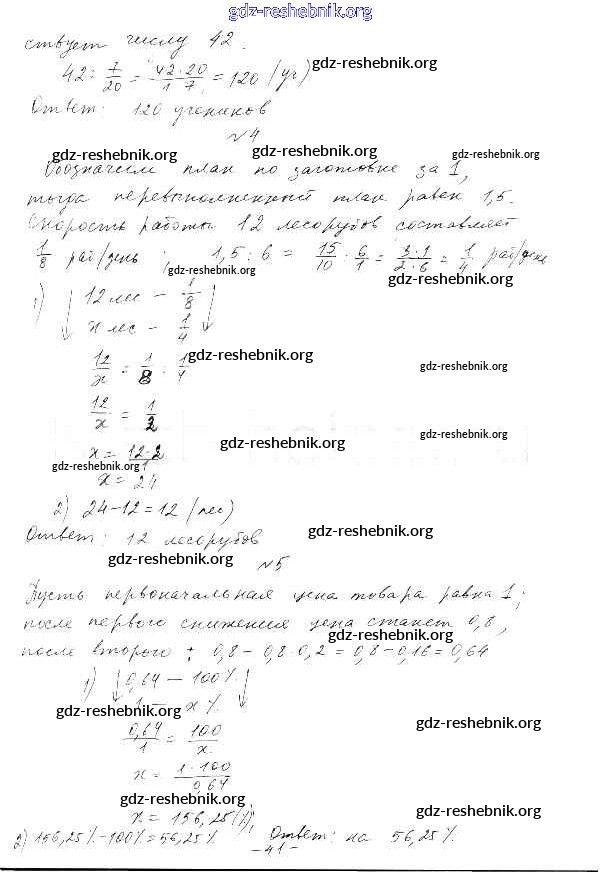 gdz-reshebnik.org
ствует числу 42.
42 : 7/20 = 42·20/1·7 = 120 (уч)
gdz-reshebnik.org
Ответ: 120 учеников
№4
gdz-reshebnik.org gdz-reshebnik.org gdz-reshebnik.org
Обозначим план по заготовке за 1,
тогда перевыполненный план равен 1,5.
Скорость работы 12 лесорубов составляет
1/8 раб/день; 1,5 : 6 = 15/10 : 6/1 = 3·1/2·6 = 1/4 раб/день
gdz-reshebnik.org gdz-reshebnik.org
1) 12 лес – 1/8
х лес – 1/4
gdz-reshebnik.org
12/х = 1/8 : 1/4
gdz-reshebnik.org
12/х = 1/2
gdz-reshebnik.org gdz-reshebnik.org
х = 12·2/1
gdz-reshebnik.org
х = 24
2) 24–12=12 (лес)
gdz-reshebnik.org
Ответ: 12 лесорубов
gdz-reshebnik.org
№5
Пусть первоначальная цена товара равна 1;
после первого снижения цена станет 0,8,
gdz-reshebnik.org
после второго : 0,8 – 0,8·0,2 = 0,8–0,16=0,64
1) 0,64 – 100%
1 – х%
gdz-reshebnik.org gdz-reshebnik.org
0,64/1 = 100/х
х = 1·100/0,64
gdz-reshebnik.org gdz-reshebnik.org
х = 156,25(%);
2) 156,25%–100%=56,25% Ответ: на 56,25%.
–41–